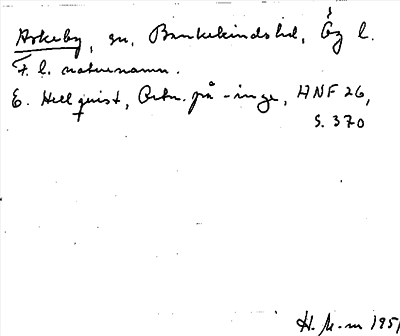 Askeby, sn, Bankekinds hd, Ög l.
F. l. naturnamn.
E. Hellquist, Ortn. på -inge, HNF 26,
S. 370
H. M-m 1951